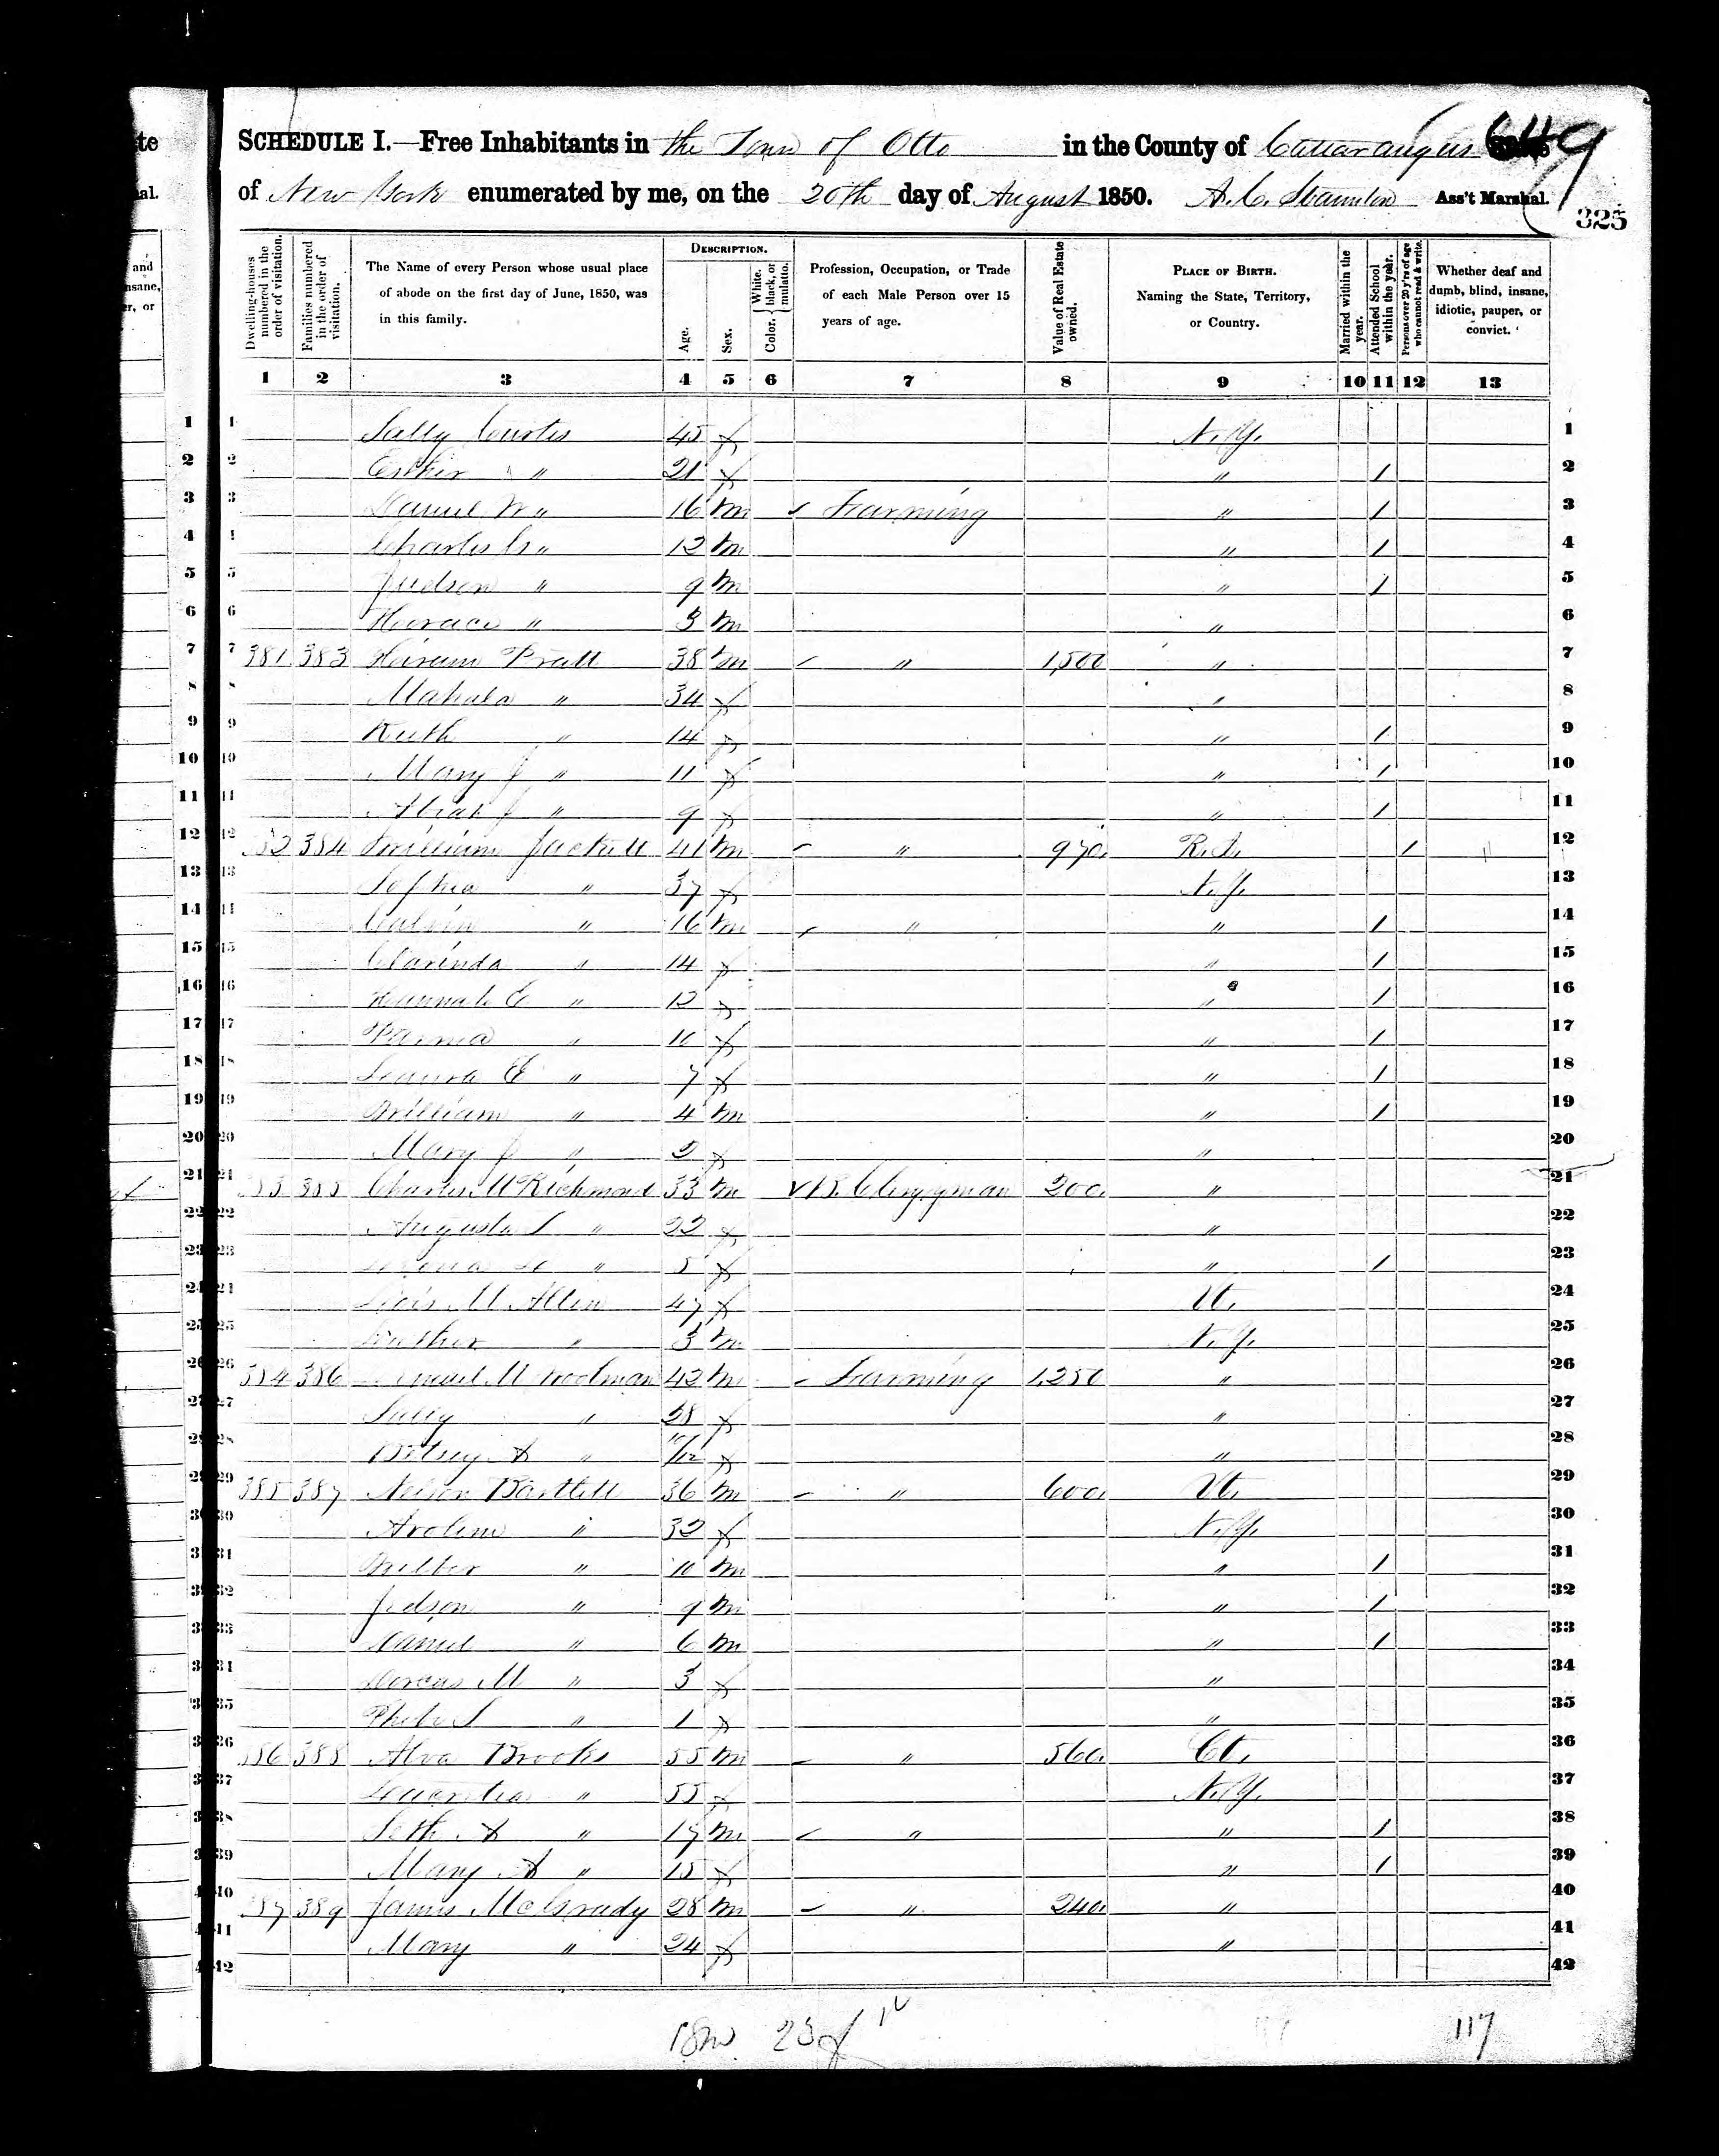 SCHEDULE I.—Free Inhabitants in the Town of Otto in the County of Cattaraugus 649
of New York enumerated by me, on the 20th day of August 1850. A. C. Ass't Marshal. 325
Dwelling-houses numbered in the order of visitation.
Families numbered in the order of visitation.
The Name of every Person whose usual place of abode on the first day of June, 1850, was in this family.
DESCRIPTION.
Age.
Sex.
Color. { White, black, or mulatto.
Profession, Occupation, or Trade of each Male Person over 15 years of age.
Value of Real Estate owned.
PLACE OF BIRTH. Naming the State, Territory, or Country.
Married within the year.
Attended School within the year.
Persons over 20 y'rs of age who cannot read & write.
Whether deaf and dumb, blind, insane, idiotic, pauper, or convict.
1 2 3 4 5 6 7 8 9 10 11 12 13
1 Sally Curtis 45 f N.Y. 1
2 Esther " 21 f " / 2
3 16 m ✓ Farming " / 3
4 Charles " 12 m " / 4
5 Judson " 9 m " / 5
6 Horace " 3 m " 6
7 381 383 Hiram Pratt 38 m ✓ " 1,500 " 7
8 Mahala " 34 f " 8
9 Ruth " 14 f " / 9
10 Mary J " 11 f " / 10
11 J " 9 f " / 11
12 384 William 41 m ✓ " R.I. / 12
13 Sophia " 37 f N.Y. 13
14 Calvin " 16 m ✓ " " / 14
15 Clarinda " 14 f " / 15
16 Hannah E " 12 f " / 16
17 " 10 f " / 17
18 E " 7 f " / 18
19 William " 4 m " / 19
20 Mary J " 2 f " 20
21 385 Charles M Richmond 33 m ✓ B. Clergyman 200. " 21
22 Augusta S " 22 f " 22
23 " 5 f " / 23
24 Lois M Allen 47 f Vt. 24
25 Luther " 3 m N.Y. 25
26 384 386 M Woolman 42 m ✓ Farming 1,250 " 26
27 Sally " 28 f " 27
28 Betsey A " 10/12 f " 28
29 385 387 Nelson Bartlett 36 m ✓ " 600. Vt. 29
30 Aroline " 32 f N.Y. 30
31 Wilber " 10 m " / 31
32 Judson " 9 m " / 32
33 Daniel " 6 m " / 33
34 Dorcas M " 3 f " 34
35 Phebe S " 1 f " 35
36 386 388 Alva Brooks 55 m ✓ " 560. Ct. 36
37 " 55 f N.Y. 37
38 Seth A " 17 m ✓ " " / 38
39 Mary A " 15 f " / 39
40 387 389 James McGrady 28 m ✓ " 240. " 40
41 Mary " 24 f " 41
42 42
18m 23f 117